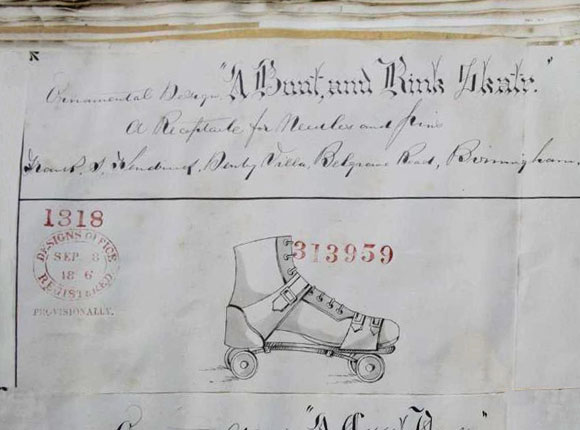 Ornamental Design, "A Boot, and Rink Skate."
A Receptacle for Needles and Pins
Villa, Belgrave Road, Birmingham.
1318
DESIGNS OFFICE
SEP 8
REGISTERED
PROVISIONALLY.
313959